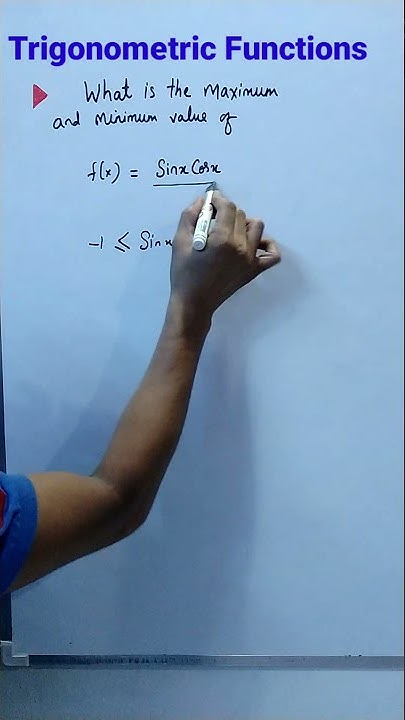 Trigonometric Functions
What is the Maximum
and Minimum value of
f(x) = Sinx Cosx
-1 ≤ Sinx